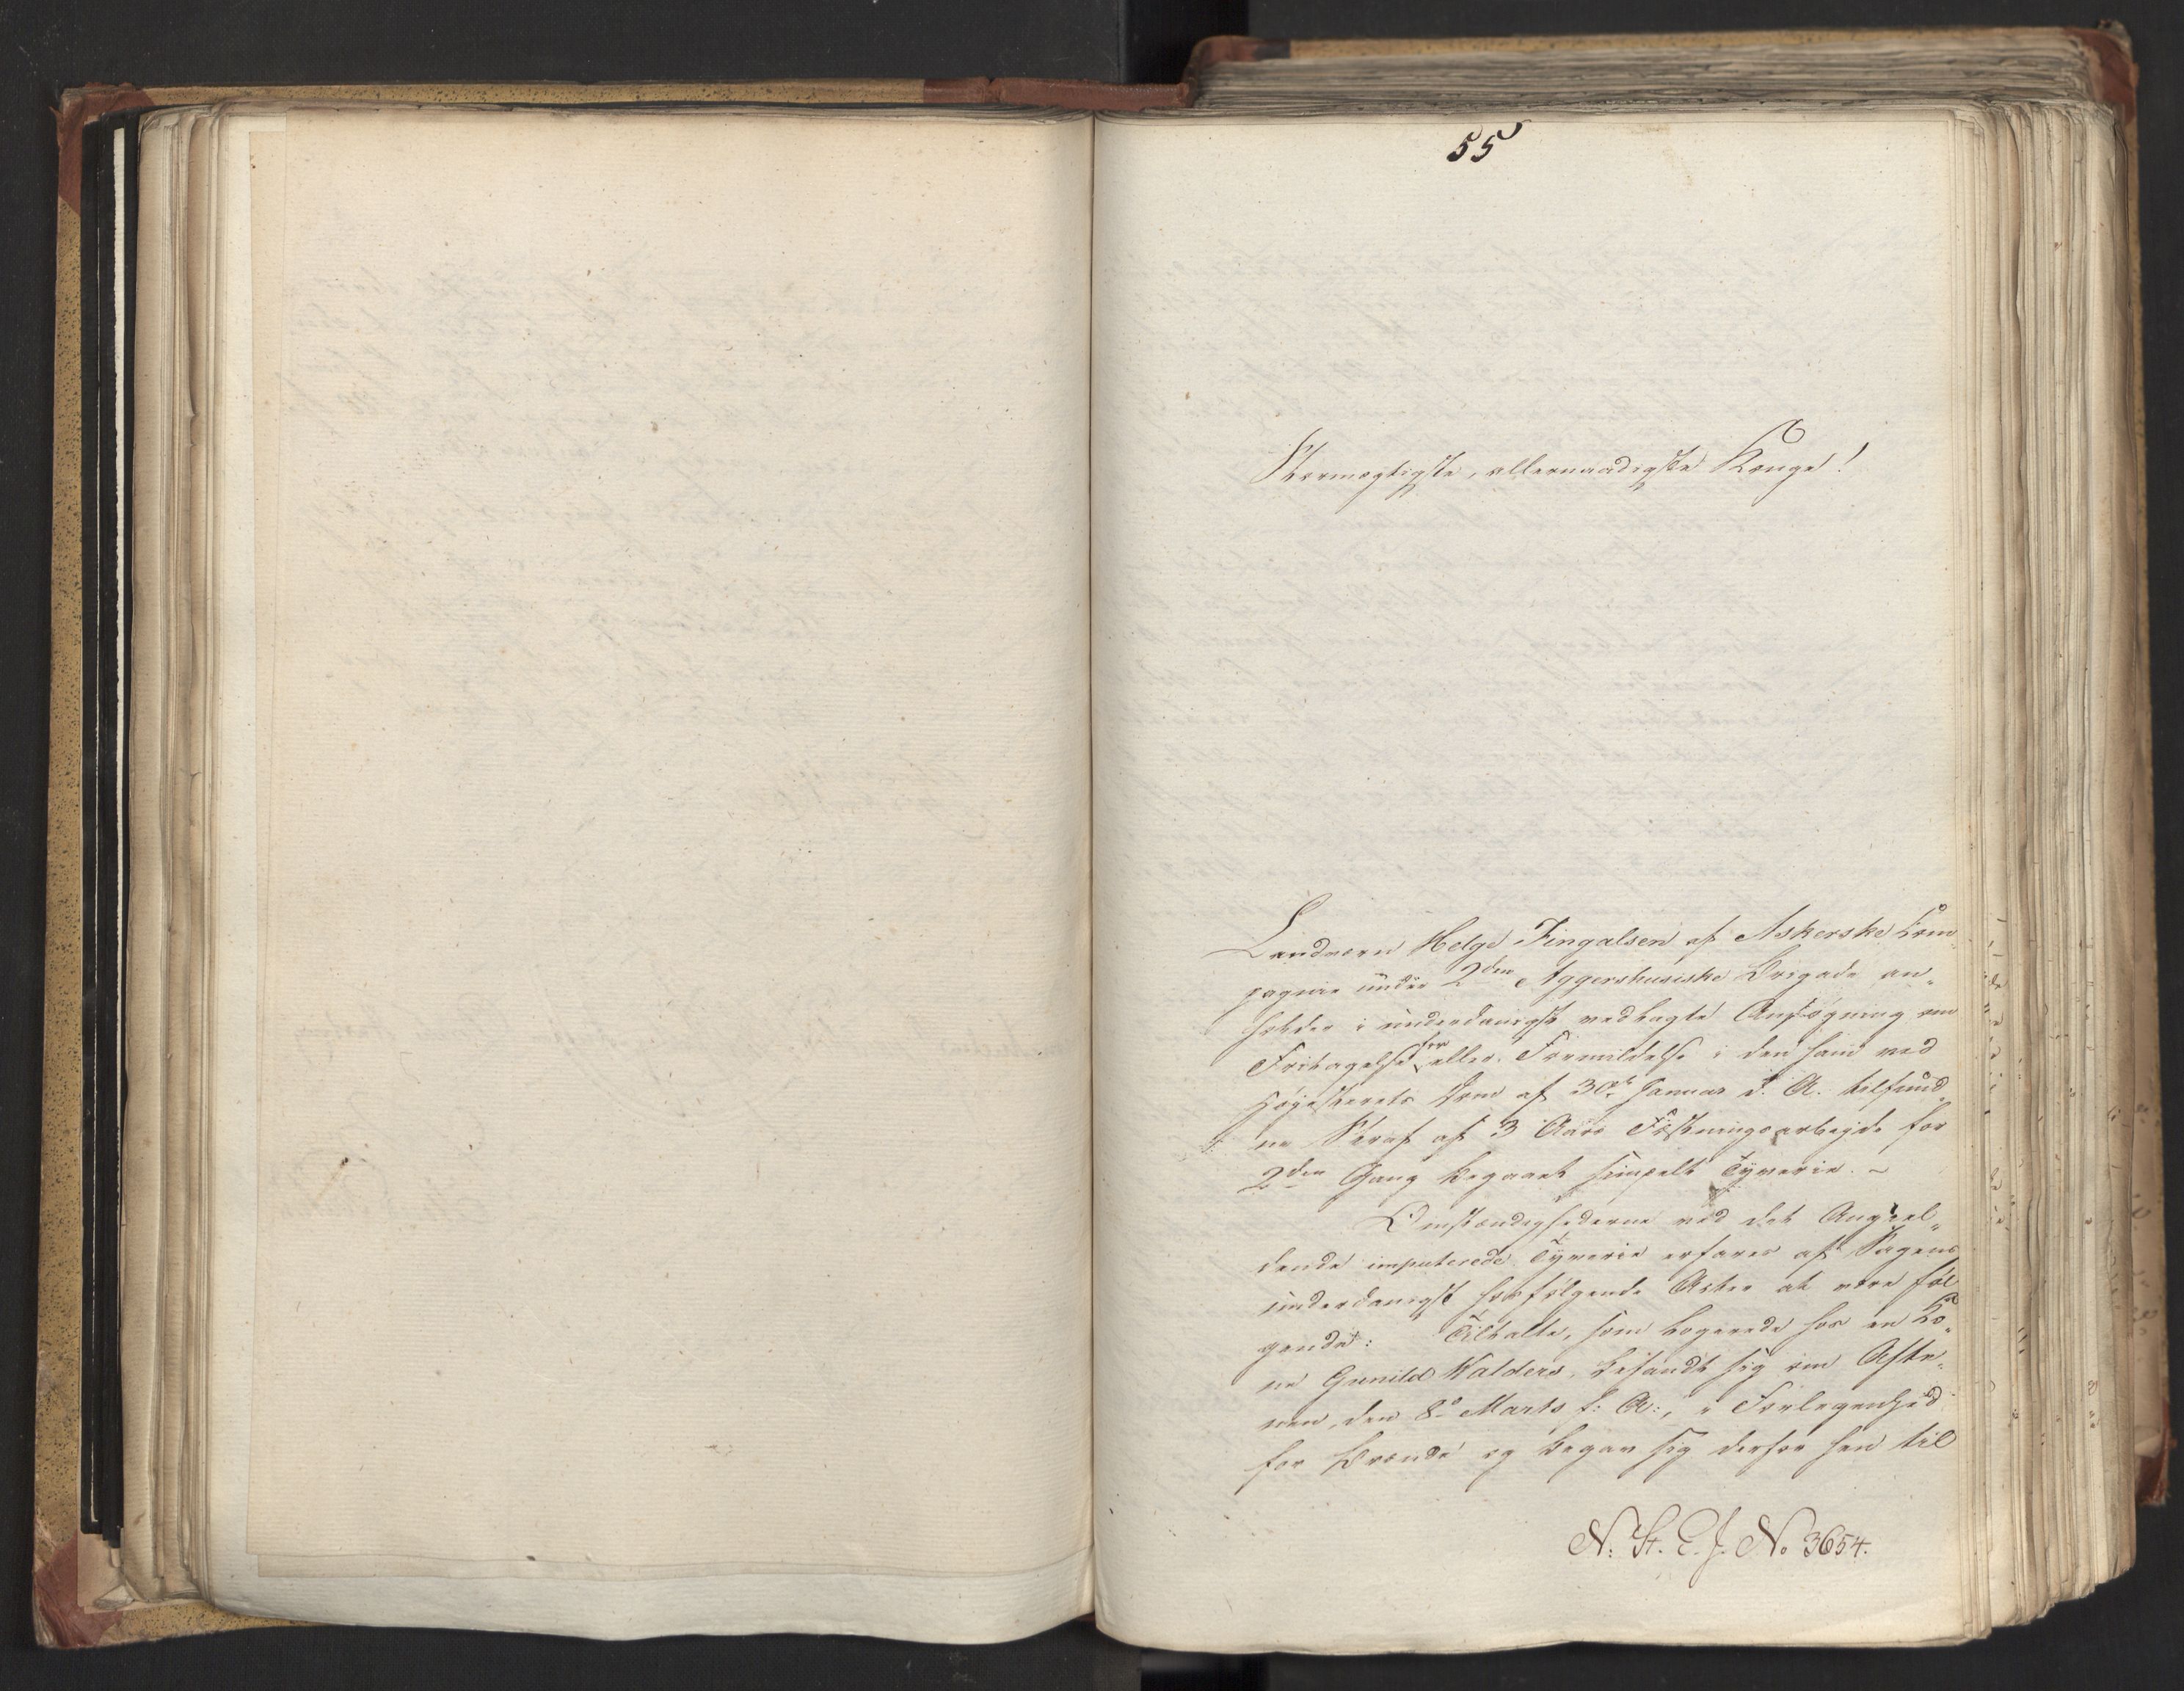 55
Stormægtigste, allernaadigste Konge!
Landværn Helge Fingalsen af Askerske Kom„
pagnie under 2den Aggershusiske Brigade an„
holder i underdanigst vedlagte Ansøgning om
Fritagelse for eller Formildelse i den ham ved
Høiesterets Dom af 30te Januar d. A. tilfund„
ne Straf af 3 Aars Fæstningsarbeyde for
2den Gang begaaet simpelt Tyverie. –
Omstændighederne ved det Angjel„
dende imputerede Tyverie erfares af Sagens
underdanigst hosfølgende Akter at være føl
gende: Tiltalte, som logerede hos en Ko„
ne Gunild Walders, befandt sig om Afte„
nen, den 8de Marts f: A:, i Forlegenhed
for Brænde og begav sig derfor hen til
N: St. E. J. No 3654.